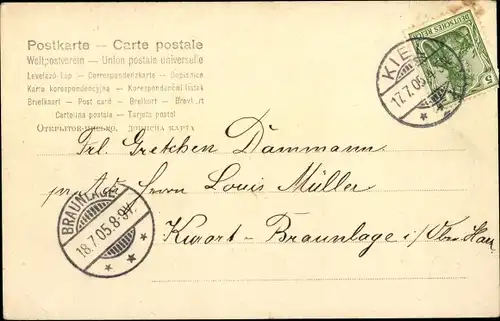 Postkarte – Carte postale
Weltpostverein – Union postale universelle
Levelező-Lap – Correspondenzkarte – Dopisnice
Karta korespondencyjna – Korespondenční lístek
Briefkaart – Post card – Brefkort – Brevkort
Cartolina postale – Tarjeta postal
Открытое письмо. Дописна карта
DEUTSCHES REICH
5
KIEL
17.7.05
Frl. Gretchen Dammann
Herrn Louis Müller
Kurort – Braunlage i/Ober Harz
BRAUNLAGE
18.7.05.8-9V.